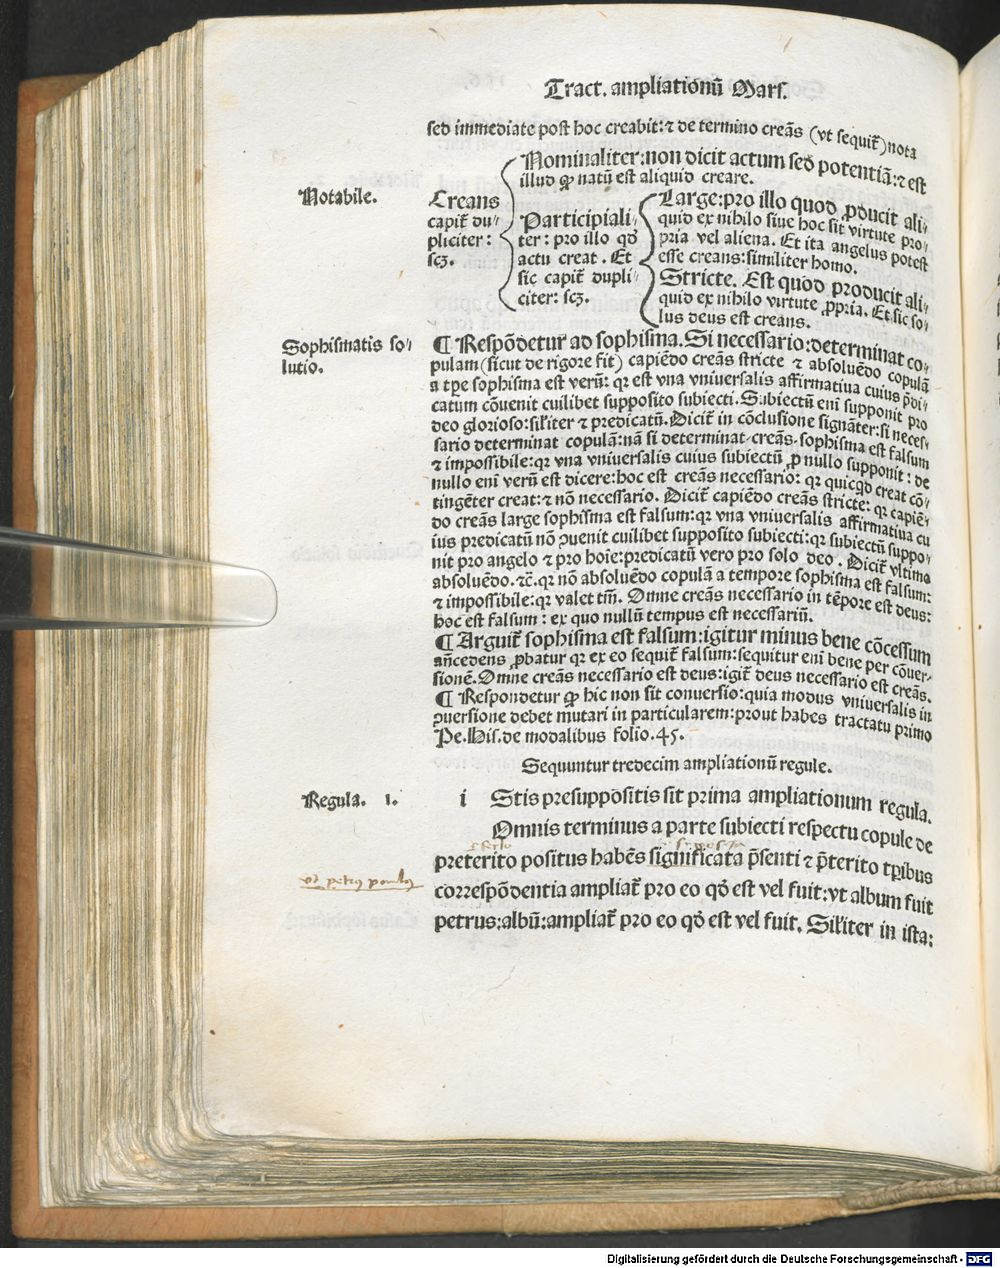 Tract. ampliationū Mars.
sed immediate post hoc creabit: ⁊ de termino creās (vt sequit̄) nota
Notabile.
Creans
capit̄ du-
pliciter:
scꝫ.
Nominaliter: non dicit actum sed potentiā: ⁊ est
illud ꝙ natū est aliquid creare.
Participiali-
ter: pro illo qd̄
actu creat. Et
sic capit̄ dupli-
citer: scꝫ.
Large: pro illo quod ꝓducit ali-
quid ex nihilo siue hoc sit virtute pro-
pria vel aliena. Et ita angelus potest
esse creans: similiter homo.
Stricte. Est quod producit ali-
quid ex nihilo virtute ꝓpria. Et sic so-
lus deus est creans.
Sophismatis so-
lutio.
¶ Respōdetur ad sophisma. Si necessario: determinat co-
pulam (sicut de rigore fit) capiēdo creās stricte ⁊ absoluēdo copulā
a tꝑe sophisma est verū: qr est vna vniuersalis affirmatiua cuius p̄di-
catum cōuenit cuilibet supposito subiecti. Subiectū eni supponit pro
deo glorioso: silr̄iter ⁊ predicatū. Dicit̄ in cōclusione signāter: si neces-
sario determinat copulā: nā si determinat creās sophisma est falsum
⁊ impossibile: qr vna vniuersalis cuius subiectū ꝓ nullo supponit: de
nullo eni verū est dicere: hoc est creās necessario: qr quicqd creat cō-
tingēter creat: ⁊ nō necessario. Dicit̄ capiēdo creās stricte: qr capiē-
do creās large sophisma est falsum: qr vna vniuersalis affirmatiua cu
ius predicatū nō ꝓuenit cuilibet supposito subiecti: qr subiectū suppo-
nit pro angelo ⁊ pro hoie: predicatū vero pro solo deo. Dicit̄ vltimo
absoluēdo. ⁊c̄. qr nō absoluēdo copulā a tempore sophisma est falsum:
⁊ impossibile: qr valet tm̄. Omne creās necessario in tēpore est deus:
hoc est falsum: ex quo nullū tempus est necessariū.
¶ Arguit̄ sophisma est falsum: igitur minus bene cōcessum
an̄cedens ꝓbatur qr ex eo sequit̄ falsum: sequitur eni bene per cōuer-
sionē. Omne creās necessario est deus: igit̄ deus necessario est creās.
¶ Respondetur ꝙ hic non sit conuersio: quia modus vniuersalis in
ꝓuersione debet mutari in particularem: prout habes tractatu primo
Pe. His. de modalibus folio. 45.
Sequuntur tredecim ampliationū regule.
Regula. 1.
i Stis presuppositis sit prima ampliationum regula.
Omnis terminus a parte subiecti respectu copule de
preterito positus habēs significata p̄senti ⁊ p̄terito tꝑibus
correspōdentia ampliat̄ pro eo qd̄ est vel fuit: vt album fuit
petrus: albū: ampliat̄ pro eo qd̄ est vel fuit. Silr̄iter in ista:
Digitalisierung gefördert durch die Deutsche Forschungsgemeinschaft - DFG